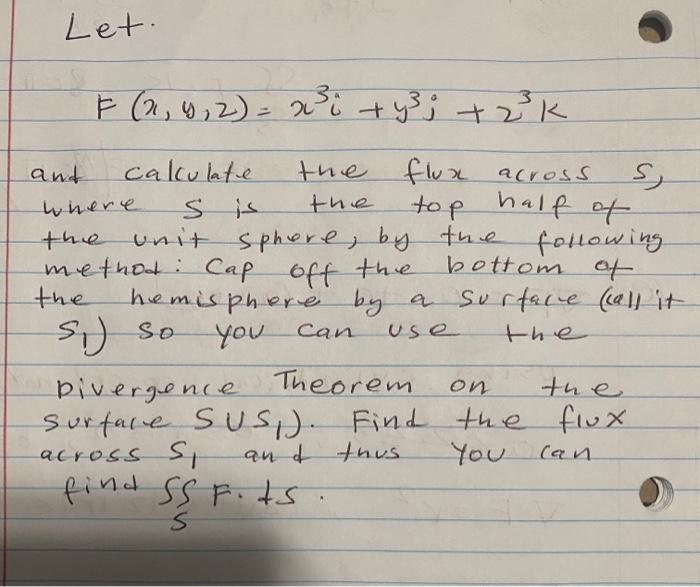 Let.
F (x, y, z) = x³i + y³j + z³k
and calculate the flux across S,
where S is the top half of
the unit sphere, by the following
method: Cap off the bottom of
the hemisphere by a surface (call it
S₁) so you can use the
Divergence Theorem on the
surface S∪S₁). Find the flux
across S₁ and thus you can
find ∬ F. dS.
S